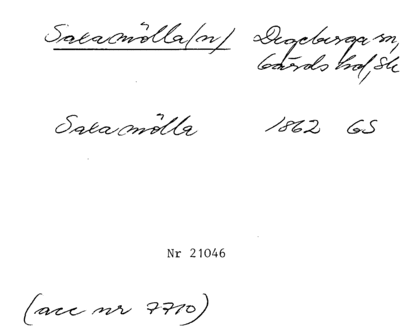 Sakamölla(n) Degeberga sn,
Gärds hd, Sk
Sakamölla 1862 GS
Nr 21046
(acc nr 7710)